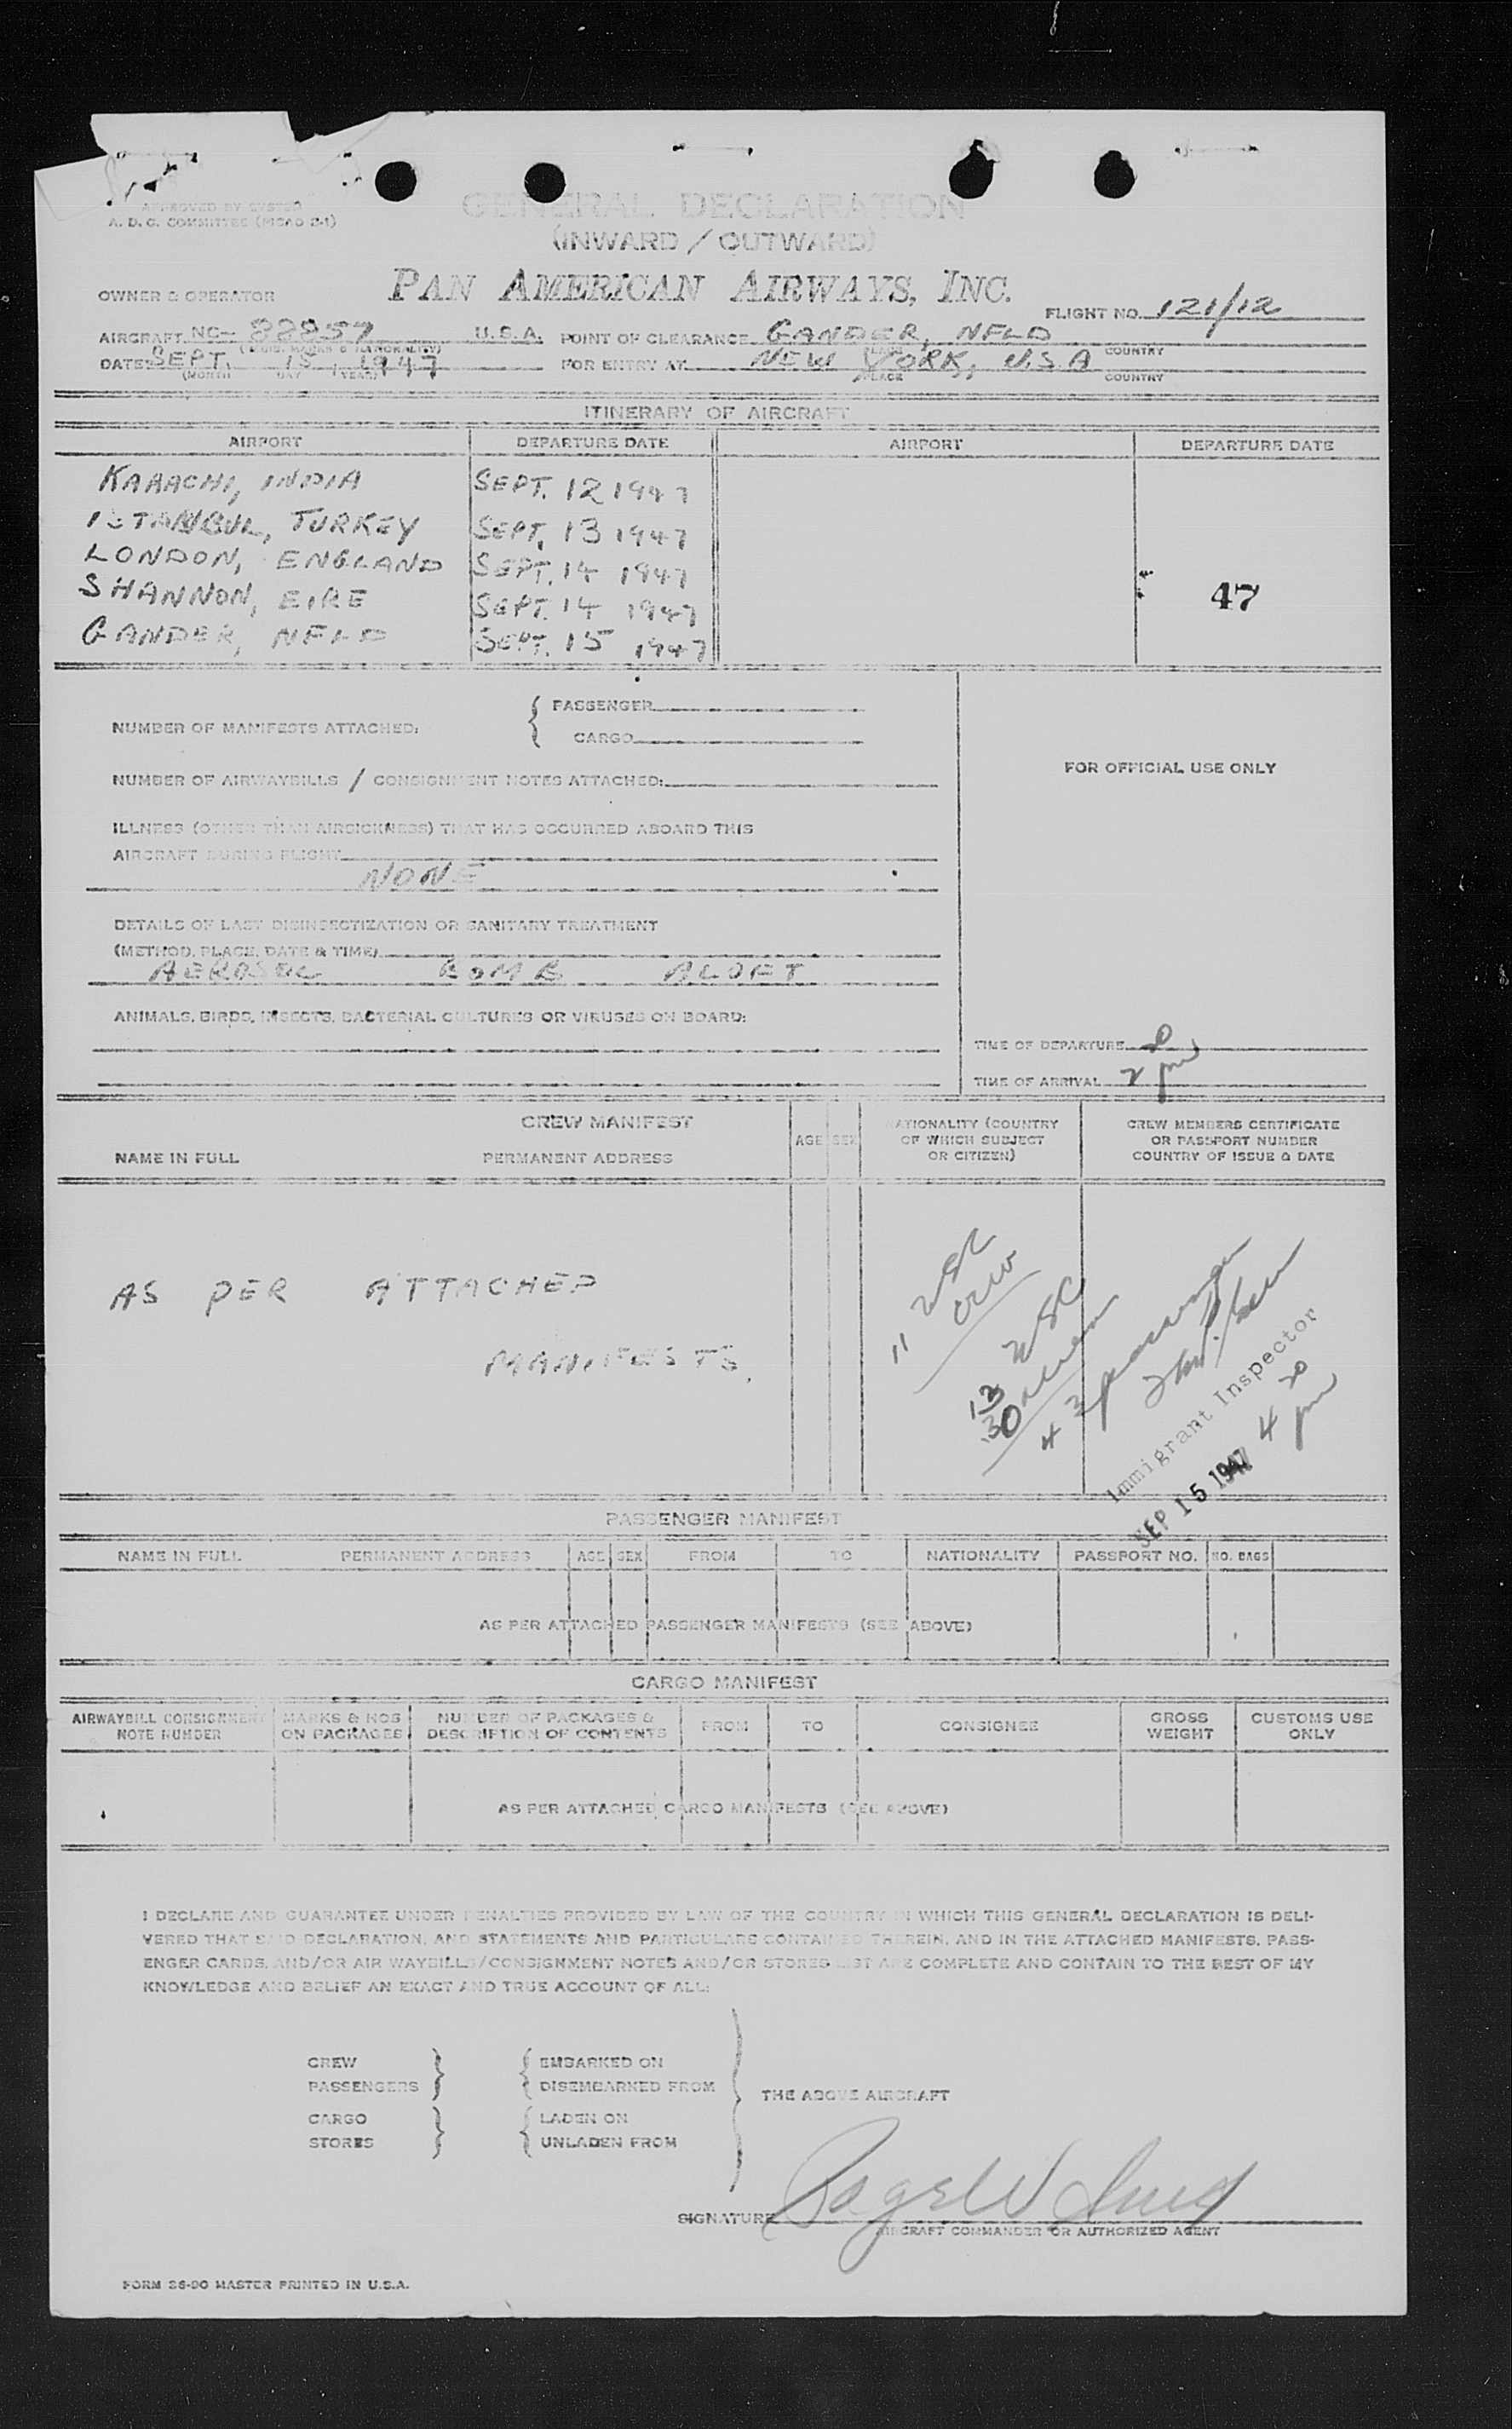 APPROVED BY
A. D. G. COMMITTEE (MGAD 2-1)
GENERAL DECLARATION
(INWARD / OUTWARD)
OWNER & OPERATOR PAN AMERICAN AIRWAYS, INC.
FLIGHT NO. 121/12
AIRCRAFT NC- 88857 U.S.A. POINT OF CLEARANCE GANDER, NFLD
(REG. MARKS & NATIONALITY) PLACE COUNTRY
DATE SEPT. 15, 1947 FOR ENTRY AT NEW YORK, U.S.A
(MONTH DAY YEAR) PLACE COUNTRY
ITINERARY OF AIRCRAFT
AIRPORT DEPARTURE DATE AIRPORT DEPARTURE DATE
KARACHI, INDIA SEPT. 12 1947
ISTANBUL, TURKEY SEPT. 13 1947
LONDON, ENGLAND SEPT. 14 1947
SHANNON, EIRE SEPT. 14 1947
47
GANDER, NFLD SEPT. 15 1947
PASSENGER
NUMBER OF MANIFESTS ATTACHED:
CARGO
FOR OFFICIAL USE ONLY
NUMBER OF AIRWAYBILLS / CONSIGNMENT NOTES ATTACHED:
ILLNESS (OTHER THAN AIRSICKNESS) THAT HAS OCCURRED ABOARD THIS
AIRCRAFT DURING FLIGHT
NONE
DETAILS OF LAST DISINSECTIZATION OR SANITARY TREATMENT
(METHOD, PLACE, DATE & TIME)
AEROSOL BOMB ALOFT
ANIMALS, BIRDS, INSECTS, BACTERIAL CULTURES OR VIRUSES ON BOARD:
TIME OF DEPARTURE
TIME OF ARRIVAL 2 20 pm
CREW MANIFEST AGE SEX NATIONALITY (COUNTRY OF WHICH SUBJECT OR CITIZEN) CREW MEMBERS CERTIFICATE OR PASSPORT NUMBER COUNTRY OF ISSUE & DATE
NAME IN FULL PERMANENT ADDRESS
AS PER ATTACHED
MANIFESTS.
11 USC crew
13 USC
30 alien
43 passenger
Immigrant Inspector
SEP 15 1947 4 20 pm
PASSENGER MANIFEST
NAME IN FULL PERMANENT ADDRESS AGE SEX FROM TO NATIONALITY PASSPORT NO. NO. BAGS
AS PER ATTACHED PASSENGER MANIFESTS (SEE ABOVE)
CARGO MANIFEST
AIRWAYBILL CONSIGNMENT NOTE NUMBER MARKS & NOS ON PACKAGES NUMBER OF PACKAGES & DESCRIPTION OF CONTENTS FROM TO CONSIGNEE GROSS WEIGHT CUSTOMS USE ONLY
AS PER ATTACHED CARGO MANIFESTS (SEE ABOVE)
I DECLARE AND GUARANTEE UNDER PENALTIES PROVIDED BY LAW OF THE COUNTRY IN WHICH THIS GENERAL DECLARATION IS DELI-
VERED THAT SAID DECLARATION, AND STATEMENTS AND PARTICULARS CONTAINED THEREIN, AND IN THE ATTACHED MANIFESTS, PASS-
ENGER CARDS, AND/OR AIR WAYBILLS/CONSIGNMENT NOTES AND/OR STORES LIST ARE COMPLETE AND CONTAIN TO THE BEST OF MY
KNOWLEDGE AND BELIEF AN EXACT AND TRUE ACCOUNT OF ALL:
CREW EMBARKED ON
PASSENGERS DISEMBARKED FROM THE ABOVE AIRCRAFT
CARGO LADEN ON
STORES UNLADEN FROM
SIGNATURE
AIRCRAFT COMMANDER OR AUTHORIZED AGENT
FORM 36-90 MASTER PRINTED IN U.S.A.